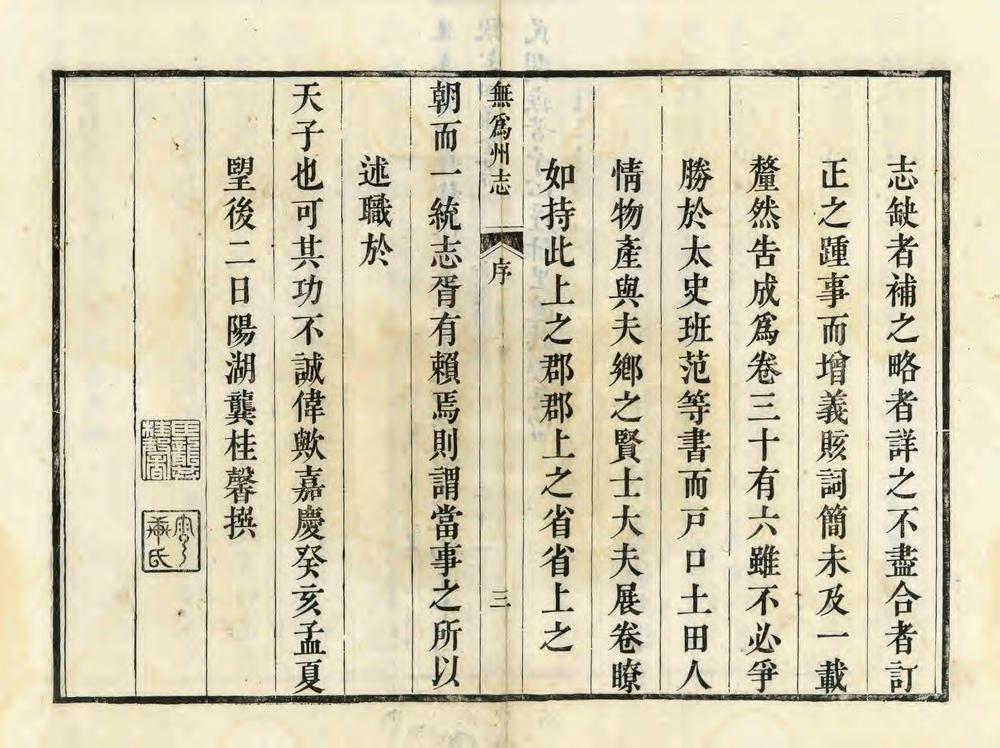 志缺者補之略者詳之不盡合者訂
正之踵事而增義賅詞簡未及一載
釐然告成爲卷三十有六雖不必爭
勝於太史班范等書而戸口土田人
情物產與夫鄉之賢士大夫展卷瞭
如持此上之郡郡上之省省上之
無爲州志 序 三
朝而一統志胥有賴焉則謂當事之所以
述職於
天子也可其功不誠偉歟嘉慶癸亥孟夏
朢後二日陽湖龔桂馨撰